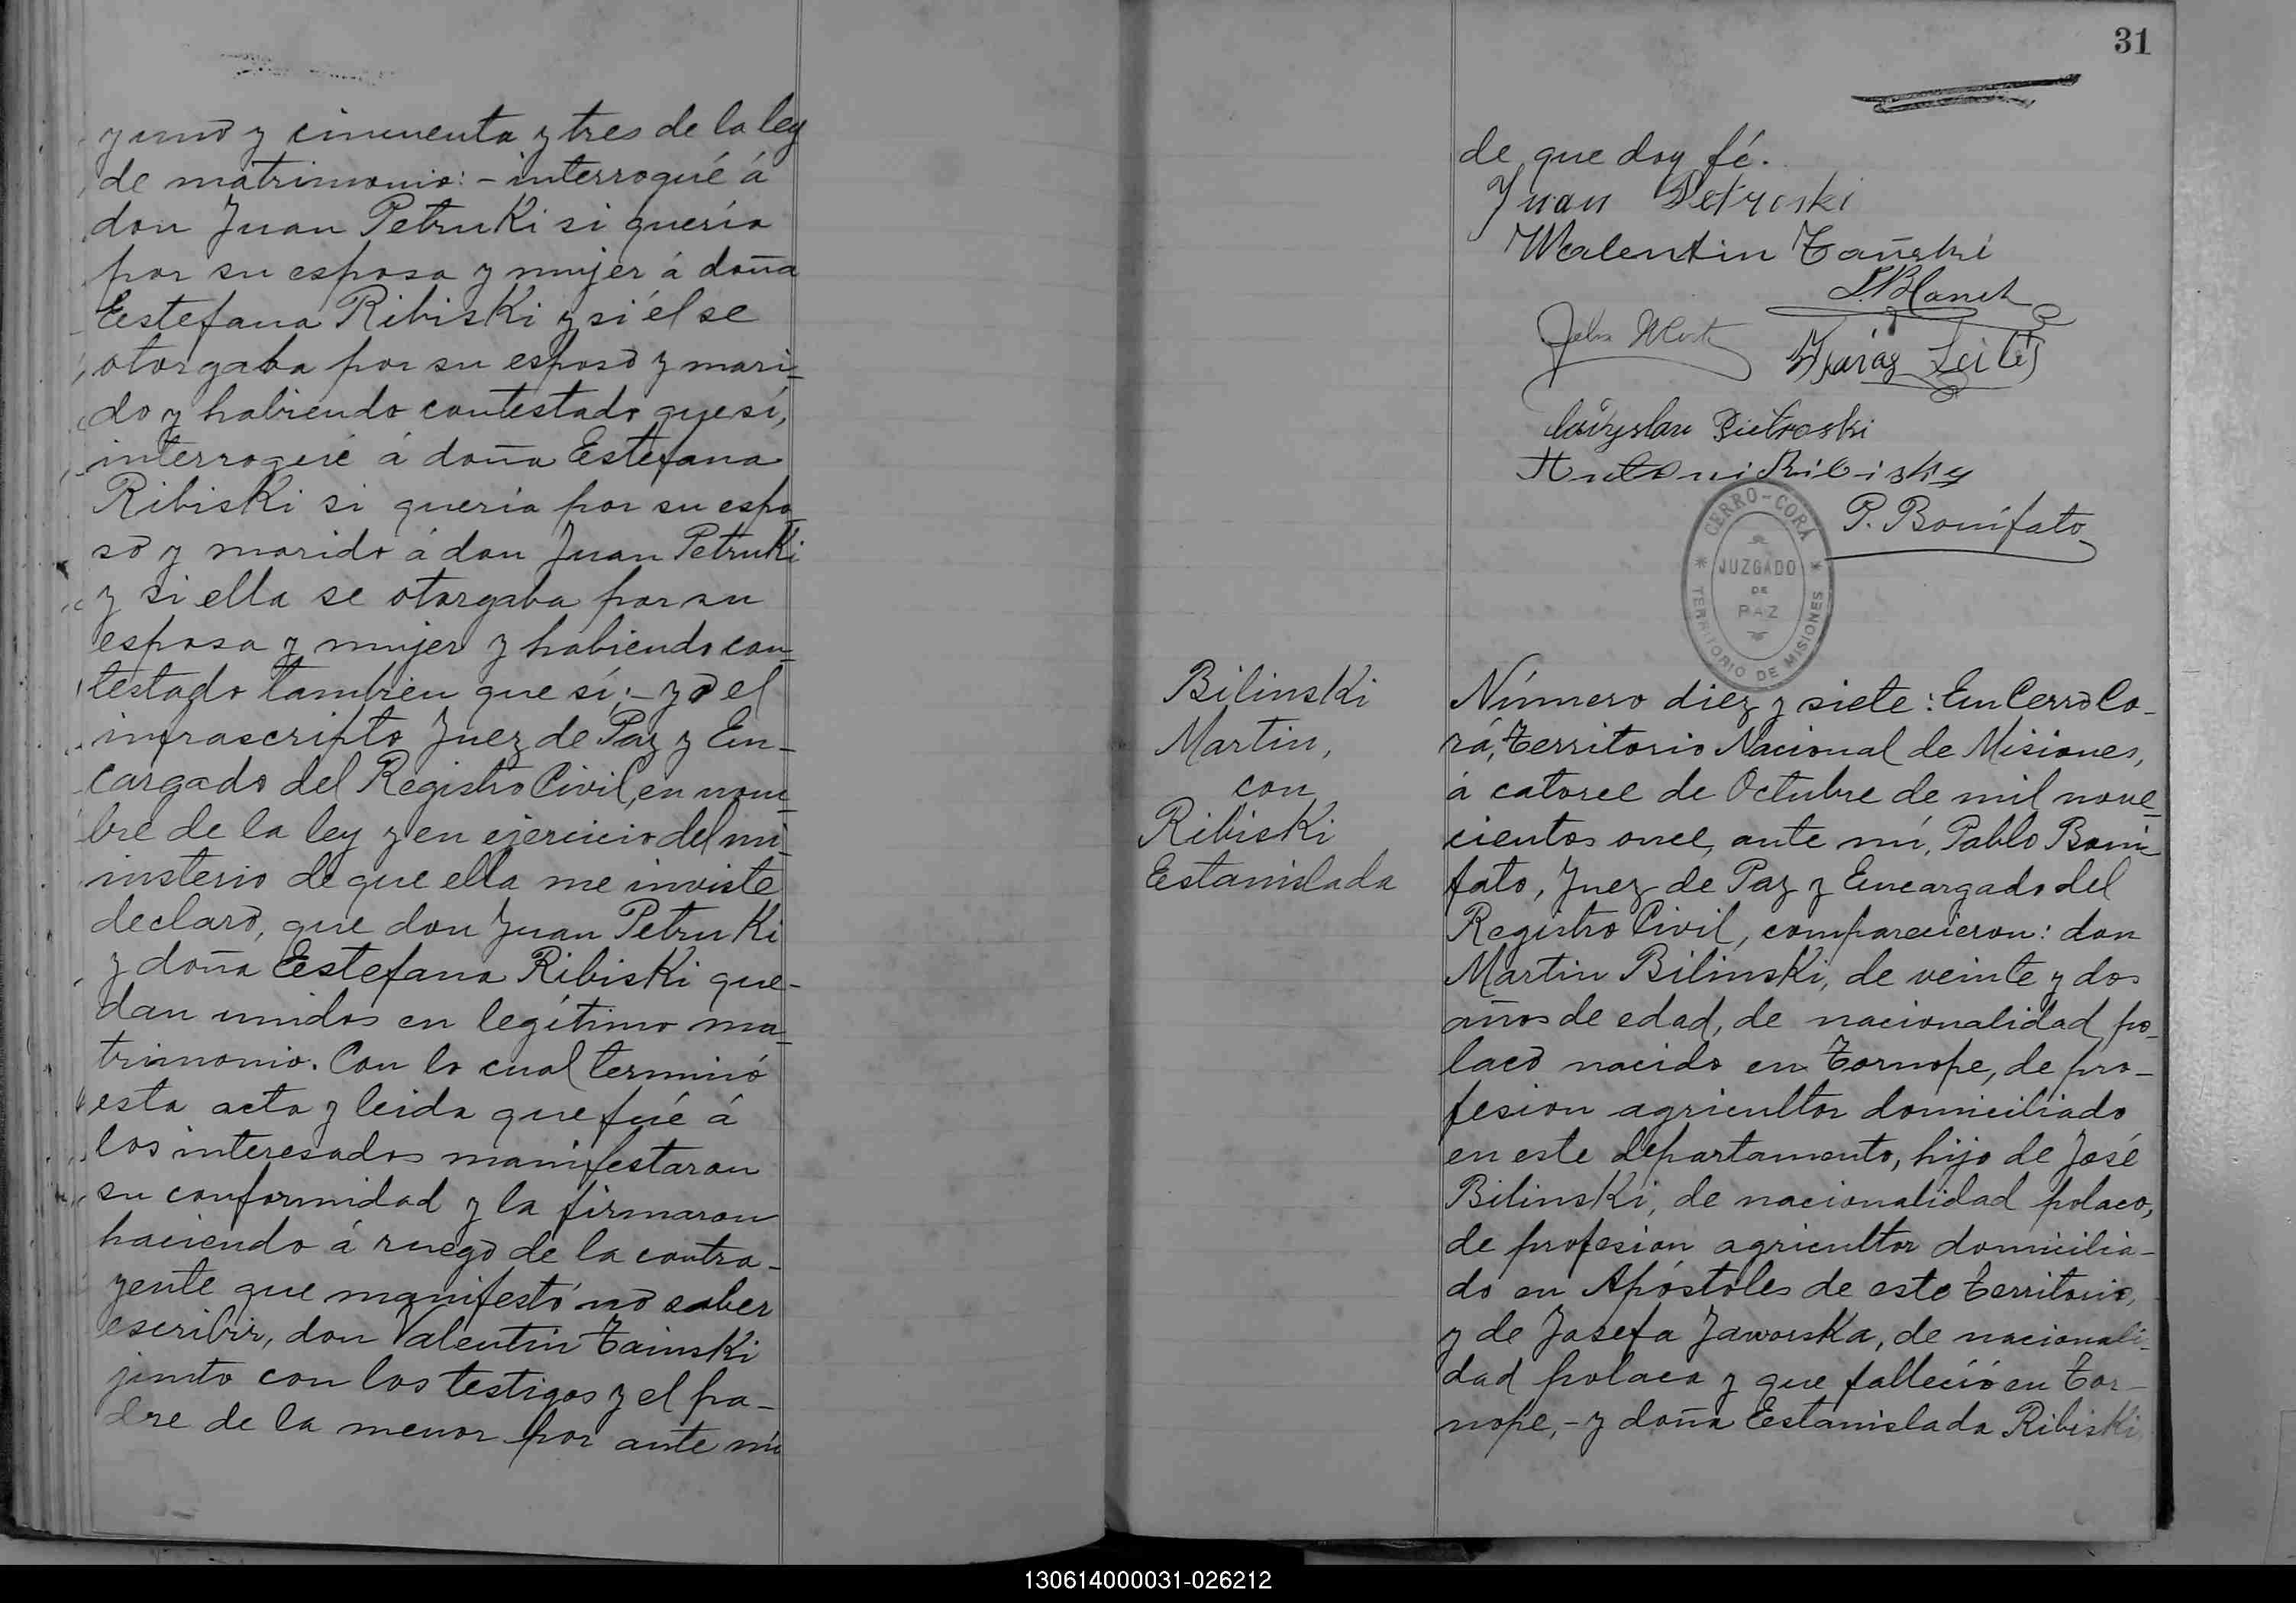 y uno y cincuenta y tres de la ley
de matrimonio:- interrogué á
don Juan Petruki si quería
por su esposa y mujer á doña
Estefana Ribiski y si él se
otorgaba por su esposo y mari-
do y habiendo contestado que sí,
interrogué á doña Estefana
Ribiski si quería por su espo-
so y marido á don Juan Petruki
y si ella se otorgaba por su
esposa y mujer y habiendo con-
testado tambien que sí;- yo el
infrascripto Juez de Paz y En-
cargado del Registro Civil, en nom-
bre de la ley y en ejercicio del mi-
nisterio de que ella me inviste
declaro, que don Juan Petruki
y doña Estefana Ribiski que-
dan unidos en legítimo ma-
trimonio. Con lo cual terminó
esta acta y leida que fué á
los interesados manifestaron
su conformidad y la firmaron
haciendo á ruego de la contra-
yente que manifestó no saber
escribir, don Valentin Tainski
junto con los testigos y el pa-
dre de la menor por ante mí
31
de que doy fé.
Juan Petroski
Walentin Tański
Ladyslau Pietroski
Antoni Ribisky
P. Bonifato
CERRO-CORÁ
JUZGADO
DE
PAZ
TERRITORIO DE MISIONES
Bilinski
Martin,
con
Ribiski
Estanislada
Número diez y siete: En Cerro Co-
rá, Territorio Nacional de Misiones,
á catorce de Octubre de mil nove-
cientos once, ante mí, Pablo Boni-
fato, Juez de Paz y Encargado del
Registro Civil, comparecieron: don
Martin Bilinski, de veinte y dos
años de edad, de nacionalidad po-
laco nacido en Tornope, de pro-
fesion agricultor domiciliado
en este departamento, hijo de José
Bilinski, de nacionalidad polaco,
de profesion agricultor domicilia-
do en Apóstoles de este territorio,
y de Josefa Jaworska, de nacionali-
dad polaca y que falleció en Tor-
nope,- y doña Estanislada Ribiski
130614000031-026212